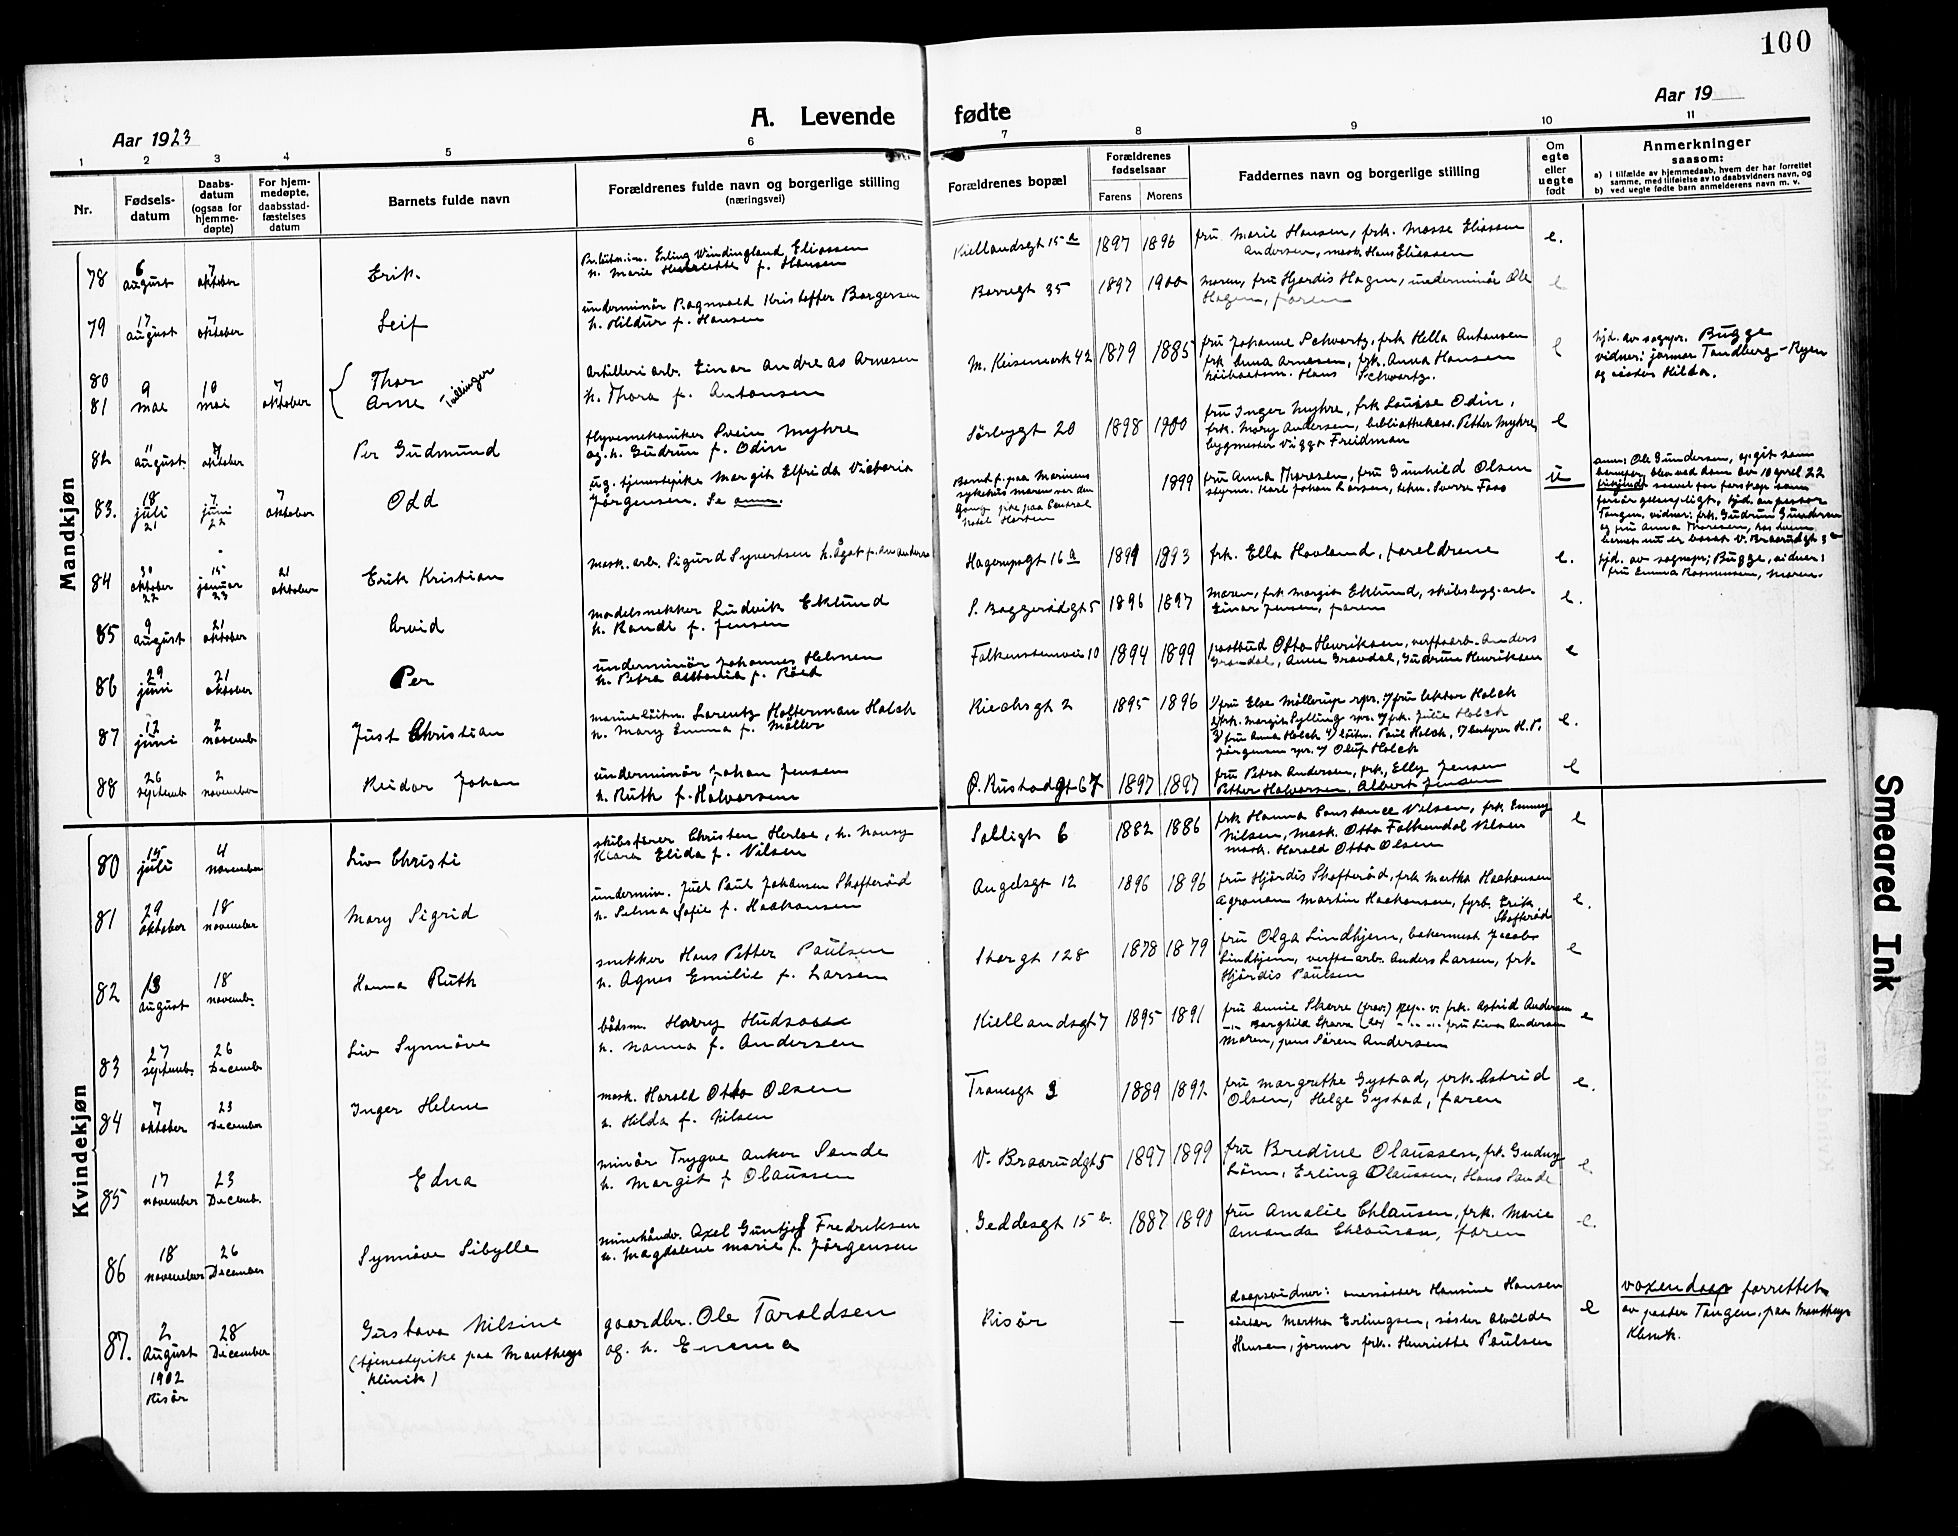 100
Aar 1923
A. Levende fødte
Aar 19
1 2 3 4 5 6 7 8 9 10 11
Nr.
Fødsels-
datum
Daabs-
datum
(ogsaa for
hjemme-
døpte)
For hjem-
medøpte,
daabsstad-
fæstelses
datum
Barnets fulde navn
Forældrenes fulde navn og borgerlige stilling
(næringsvei)
Forældrenes bopæl
Forældrenes
fødselsaar
Farens Morens
Faddernes navn og borgerlige stilling
Om
egte
eller
uegte
født
Anmerkninger
saasom:
a) I tilfælde av hjemmedaab, hvem der har forrettet
samme, med tilføielse av to daabsvidners navn, og
b) ved uegte fødte barn anmelderens navn m. v.
Mandkjøn
78 6 august 7 oktober Erik.
Erling Windingland Eliassen
h. Marie Henriette f. Hansen
Kiellandsgt 15 a 1897 1896
fru Marie Hansen, frk. Mosse Eliassen
Andersen, mask. Hans Eliassen
e.
79 17 august 7 oktober Leif
underminör Ragnvald Kristoffer Borgersen
h. Hildur f. Hansen
Borregt 35 1897 1900
moren, fru Hjordis Hagen, underminör Ole
Hagen, faren
e
80
81 9 mai 10 mai 7 oktober
Thor
Arne Tvillinger
artilleriarb. Einar Andreas Arnesen
h. Thora f. Antonsen
M. Keisemark 42 1879 1885
fru Johanne Schwartz, frk Hella Antonsen
frk Anna Arnesen, frk. Anna Hansen
Hans Schwartz.
e
hjd. av sogepr. Bugge
vidner: jormor Tandberg-Ryen
og söster Hilda.
82 11 august 7 oktober Per Gudmund
flyvemekaniker Svein Myhre
og h. Gudrun f. Odin
Sörbygt 20 1898 1900
fru Inger Myhre, frk Louise Odin,
frk. Mary Andersen, bibliothekass. Petter Myhre
bygmester Viggo Freidman
e
83. 18 juli 21 7 juni 22 7 oktober Odd
ug. tjenestpike Margit Elfrida Victoria
Jörgensen. Se anm.
Barnet f. paa Marinens
sykehus moren var den
Gang pike paa Central
hotel Horten
1899
fru Anna Thoresen, fru Gunhild Olsen
styrm. Karl Johan Larsen, tekn. Sverre Foss
u
anm: Ole Gundersen, opgit som
barnefar, blev ved dom av 10 april 22
frikjendt saavel for farskap som
forsörgelsespligt, hjd. av pastor
Tangen, vidner: frk. Gudrun Gundersen
og fru Anna Thoresen, hos hvem
barnet nu er bosat V. Braarudgt 3
84 30 oktober 22 15 januar 23 21 oktober Erik Kristian
mask. arb. Sigurd Syvertsen h. Ågot f.
Hagerupsgt 16 a 1891 1893
frk. Ella Hovland, foreldrene
e.
hjd. av sognepr. Bugge, vidner:
fru Emma Rasmussen, moren.
85 9 august 21 oktober Arvid
modelsnekker Ludvik Eklund
h. Randi f. Jensen
S. Baggerödgt 5 1896 1897
moren, frk Margit Eklund, skibsbyg.arb.
Einar Jensen, faren
e.
86 29 juni 21 oktober Per
underminör Johannes Helmen
h. Petra Alttonia f. Röed
Falkenstenvei 10 1894 1899
postbud Otto Henriksen, verftsarb. Anders
Gravdal, Anne Gravdal, Gudrun Henriksen
e
87 12 juni 2 novemb. Just Christian
marinelöitn. Lorentz Holterman Holck
h. Mary Emma f. Möller
Riechsgt 2 1895 1896
1/ fru Else Möllerup rpr. v/ fru lektor Holck
2/ frk. Margit Sylling rpr. v/ frk. Julie Holck
3/ fru Anna Holck 4/ löitn. Paul Holck, 5/ bestyrer H. P.
Jörgensen rpr. v/ Oluf Holck
e.
88 26 septemb. 2 november Reidar Johan
underminör Johan Jensen
h. Ruth f. Halvorsen
Ø. Rustadgt 67 1897 1897
fru Petra Andersen, frk. Elly Jensen
Petter Halvorsen, Albert Jensen
e
Kvindekjøn
80 15 juli 4 november Liv Christi
skibsförer Christen Herlse, h. Nanny
Klara Elida f. Nilsen
Solligt 6 1882 1886
frk Hanna Constance Nilsen, frk Emmy
Nilsen, mask. Otto Falkendal Nilsen
mask. Harald Otto Olsen
e
81 29 oktober 18 november Mary Sigrid
undermin. Juel Paul Johansen Skofteröd
h. Selma Sofie f. Haakonsen
Angelsgt 12 1896 1896
fru Hjördis Skofteröd, frk Martha Haakonsen
agronom Martin Haakonsen, fyrb. Erik
Skofteröd
e.
82 13 august 18 novemb. Hanna Ruth
snekker Hans Petter Paulsen
h. Agnes Emilie f. Larsen
Storgt 128 1878 1879
fru Olga Lindhjem, bakermest. Jacob
Lindhjem, verftsarb. Anders Larsen, frk.
Hjördis Paulsen
e
83 27 septemb. 26 Decemb. Liv Synnöve
bådsm. Harry Hudsosse
h. Nanna f. Andersen
Kiellandsgt 7 1895 1891
fru Annie Skarre (frav.) rep. v. frk. Astrid Andersen
Borghild Skarre fru Lina Andersen
Moren, Jens Sören Andersen
e
84 7 oktober 23 December Inger Helene
mask. Harald Otto Olsen
h. Hilda f. Nilsen
Tranesgt 3 1889 1892
fru Margrethe Gystad, frk. Astrid
Olsen, Helge Gystad, faren
e.
85 17 november 23 Decemb. Edna
minör Trygve Anker Sande
h. Margit f. Olaussen
V. Braarudgt 5 1897 1899
fru Bredine Olaussen, frk. Gudny
Lönn, Erling Olaussen, Hans Sande
e.
86 18 november 26 December Synnöve Sibylle
minehåndv. Axel Guntjof Fredriksen
h. Magdalene Marie f. Jörgensen
Geddesgt 15 b. 1887 1890
fru Amalie Chlausen, frk. Marie
Amanda Chlausen, faren
e.
87. 2 August 1902 Risör 28 December
Gustava Nilsine
(tjenestepike paa Mantheys
klinik)
gaardbr. Ole Taraldsen
og. h. Emma
Risör —
daapsvidner: oversöster Hansine Hansen
söster Martha Erlingsen, söster Alvilde
Hansen, jormor frk. Henriette Paulsen
e
voxendaap forrettet
av pastor Tangen, paa Mantheys
Klinik.
Smeared Ink